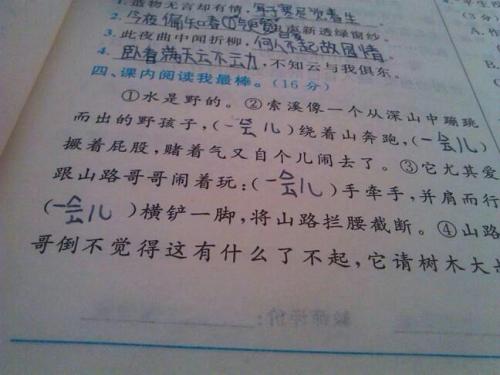 1. 造物无言却有情，每于寒尽觉春生
2. 今夜偏知春气暖，虫声新透绿窗纱。
3. 此夜曲中闻折柳，何人不起故园情。
4. 卧看满天云不动，不知云与我俱东。
四、课内阅读我最棒。(16分)
①水是野的。②索溪像一个从深山中蹦跳
而出的野孩子，(一会儿)绕着山奔跑，(一会儿)
撅着屁股，赌着气又自个儿闹去了。③它尤其爱
跟山路哥哥闹着玩：(一会儿)手牵手，并肩而行
(一会儿)横铲一脚，将山路拦腰截断。④山路
哥倒不觉得这有什么了不起，它请树木大
教师评价：